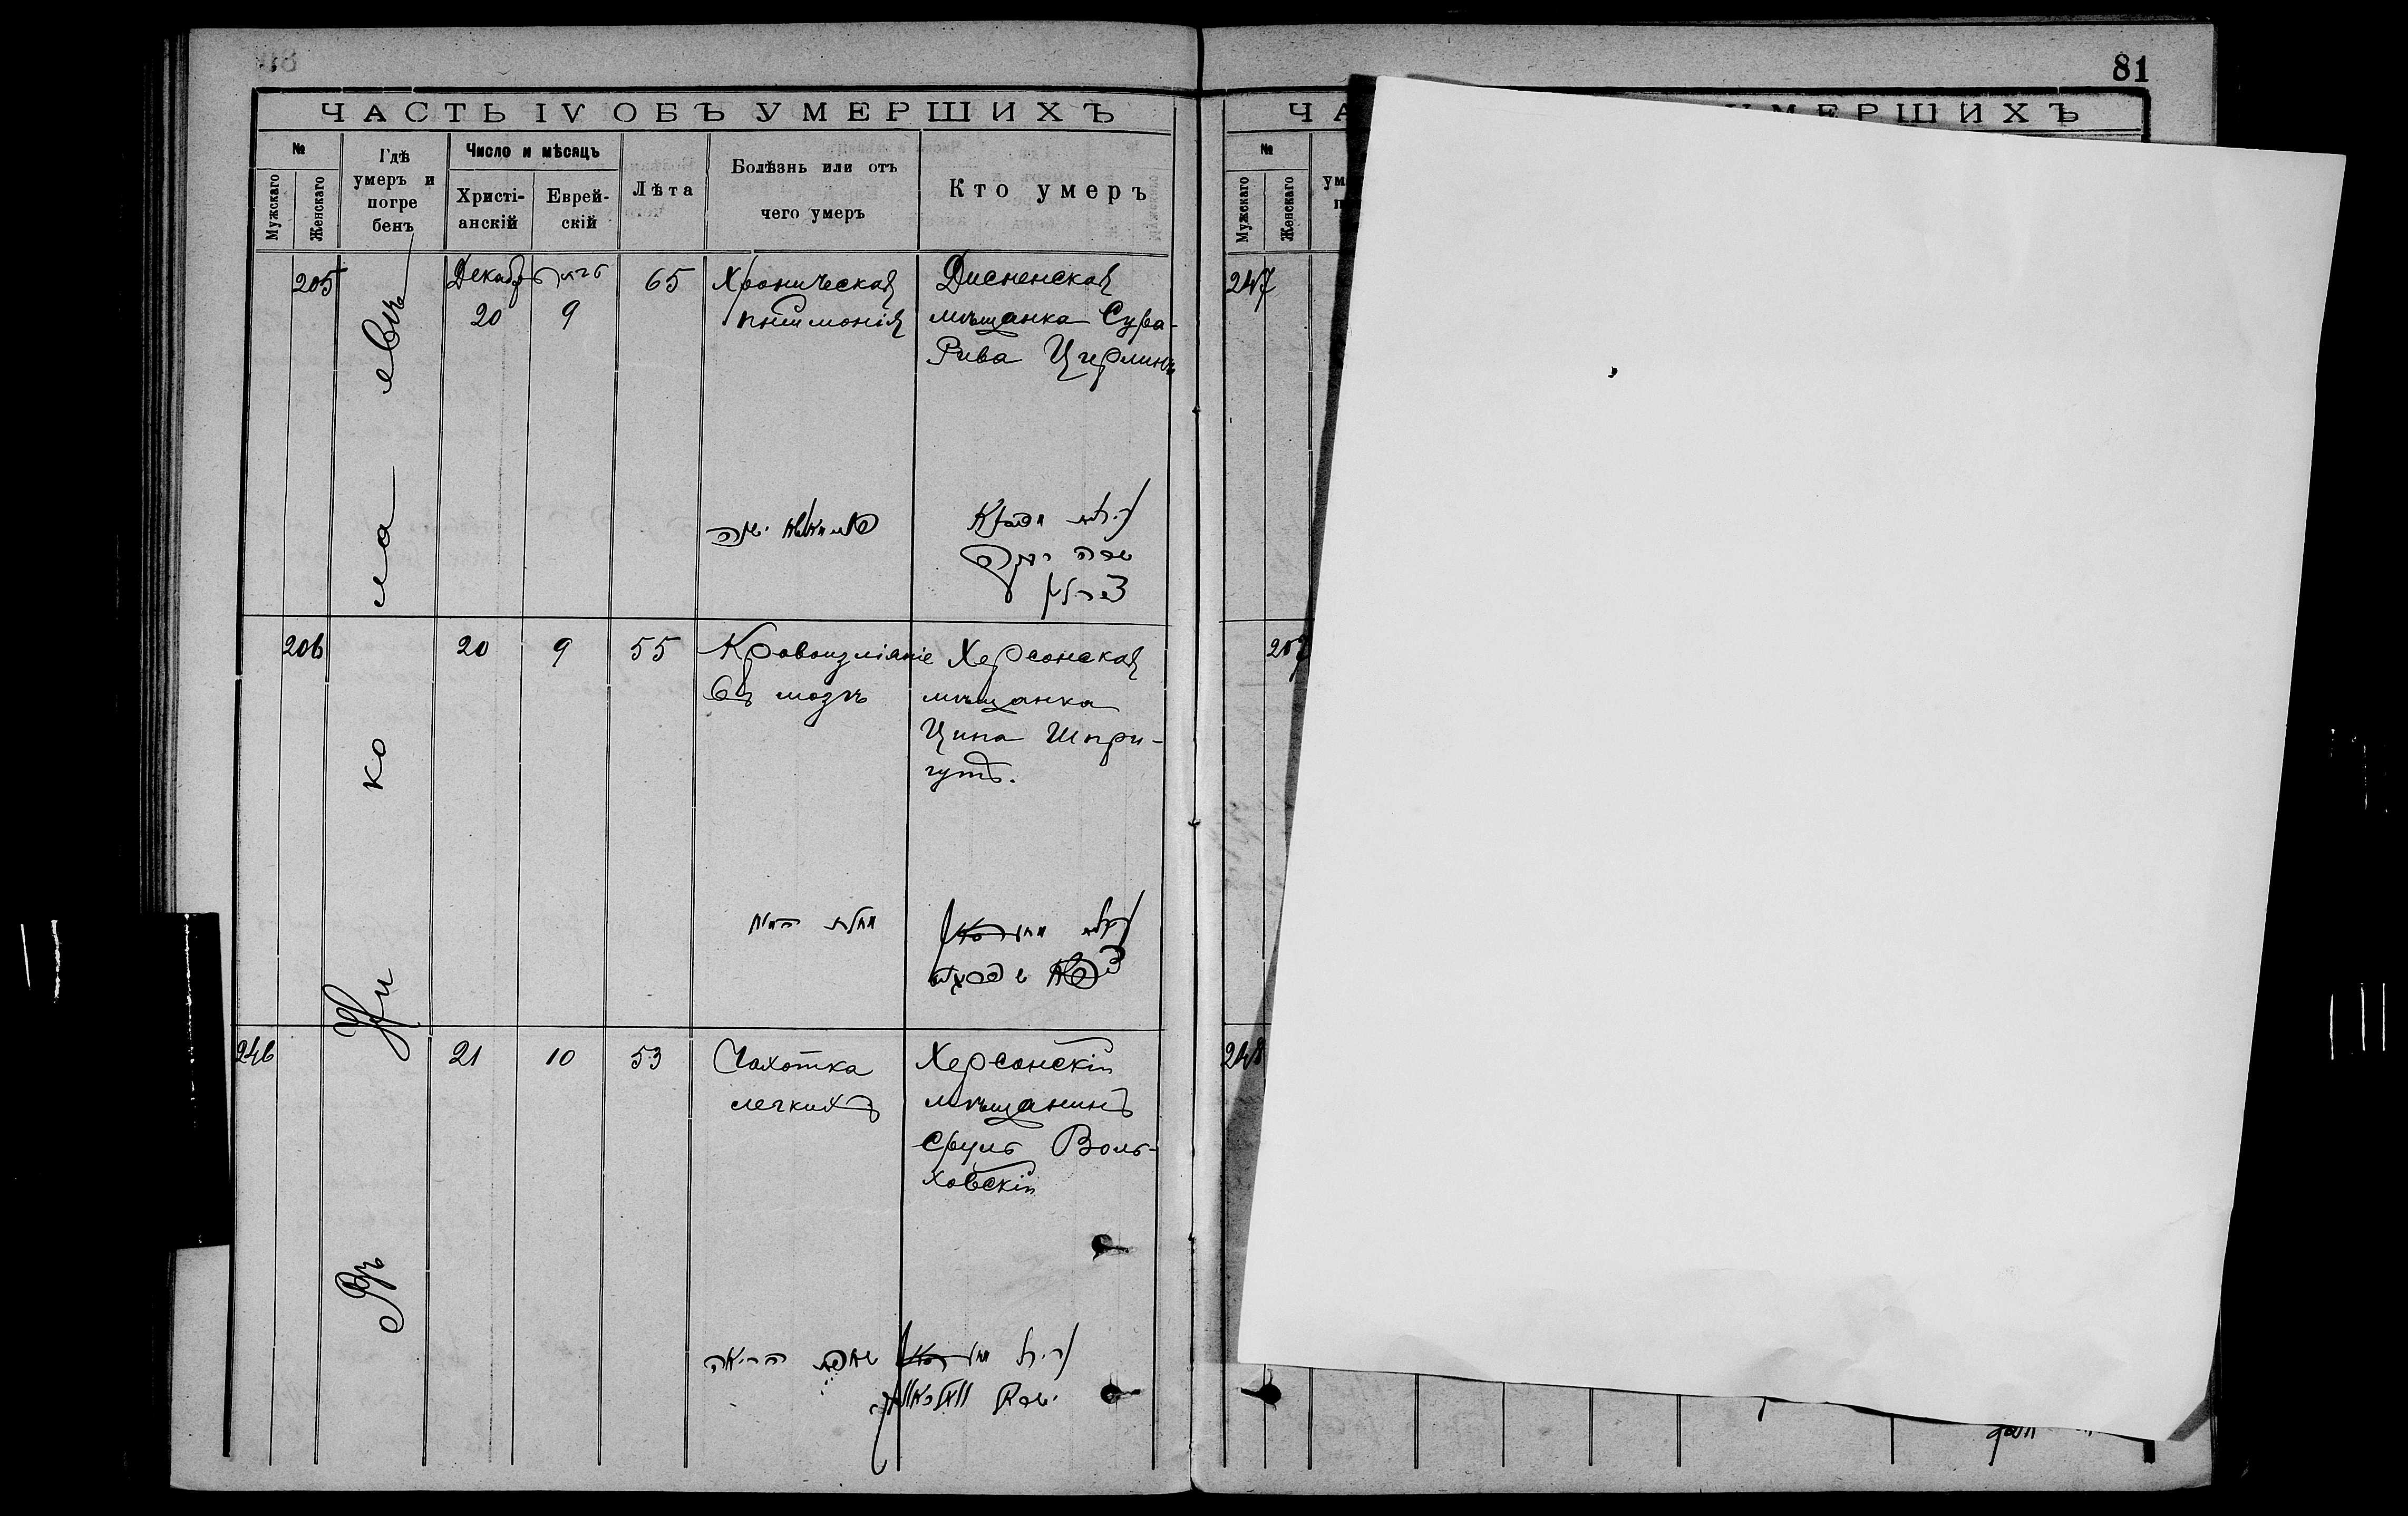 81
ЧАСТЬ IV ОБЪ УМЕРШИХЪ
№
Мужскаго
Женскаго
Гдѣ
умеръ и
погре
бенъ
Число и мѣсяцъ
Христі-
анскій
Еврей-
скій
Лѣта
Болѣзнь или отъ
чего умеръ
Кто умеръ
Въ Николаевѣ
205
Декабр
20
9
65
Хроническая
пнеимонія
Дисненская
мѣщанка Сура-
Рива Цирлинъ
שרה רבקה
צירלין
206
20
9
55
Кровоизліяніе
въ мозгъ
Херсонская
мѣщанка
Ципа Шпри-
гутъ.
246
21
10
53
Чахотка
легкихъ
Херсонскій
мѣщанинъ
Сруль Воль-
ховскій
שחפת הריאה
ЧА
УМЕРШИХЪ
№
Мужскаго
Женскаго
ум
п
247
207
248